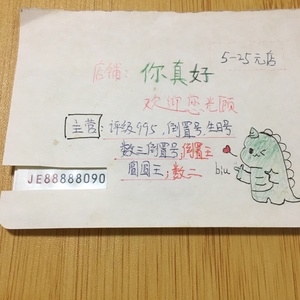 5-25元店
店铺：你真好
欢迎您光顾
主营：评级995，倒置号，生日号
数三倒置号，倒置王
圆圆王，数二
biu
JE88888090